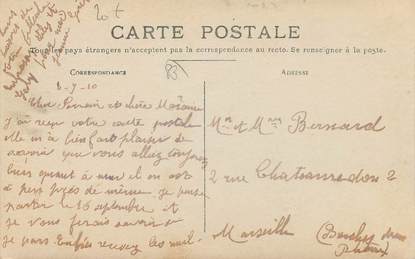 20 t
CARTE POSTALE
Tous les pays étrangers n'acceptent pas la correspondance au recto. Se renseigner à la poste.
CORRESPONDANCE
ADRESSE
83
8-9-10
Cher et chère Madame
J'ai reçu votre carte postale
elle m'a bien fait plaisir de
savoir que vous allez toujours
bien quant à moi il en est
à peu près de même je pense
partir le 16 septembre et
je vous ferais savoir si
je pars Enfin recevez les meil-
Mr et Mme Bernard
2 rue Chateauredon 2
Marseille
(Bouches du
Rhône)